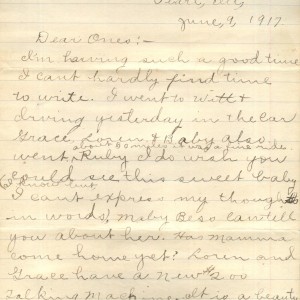 June, 9, 1917.
Dear Ones:-
I'm having such a good time
I cant hardly find time
to write. I went to Witt &
driving yesterday in the car
Grace, Loren & Baby also
about 60 miles it was a fine ride
went, Ruby I do wish you
could see this sweet baby
I know but
I cant express my thoughts
in words, Maby Bess can tell
you about her. Has Mamma
come home yet? Loren and
Grace have a New $200
Talking Machine, it is a beauty